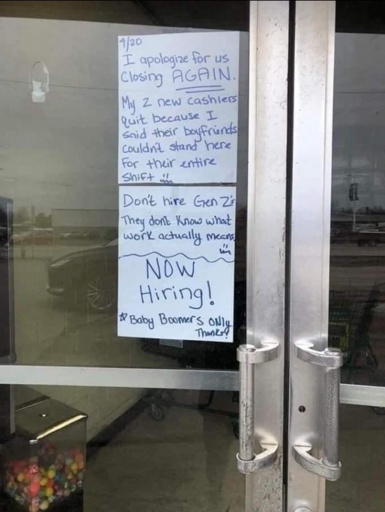 4/20
I apologize for us
Closing AGAIN.
My 2 new cashiers
quit because I
said their boyfriends
Couldn't stand here
For their entire
Shift
Don't hire Gen Z's
They don't know what
work actually means
NOW
Hiring!
Baby Boomers only
Thanks!